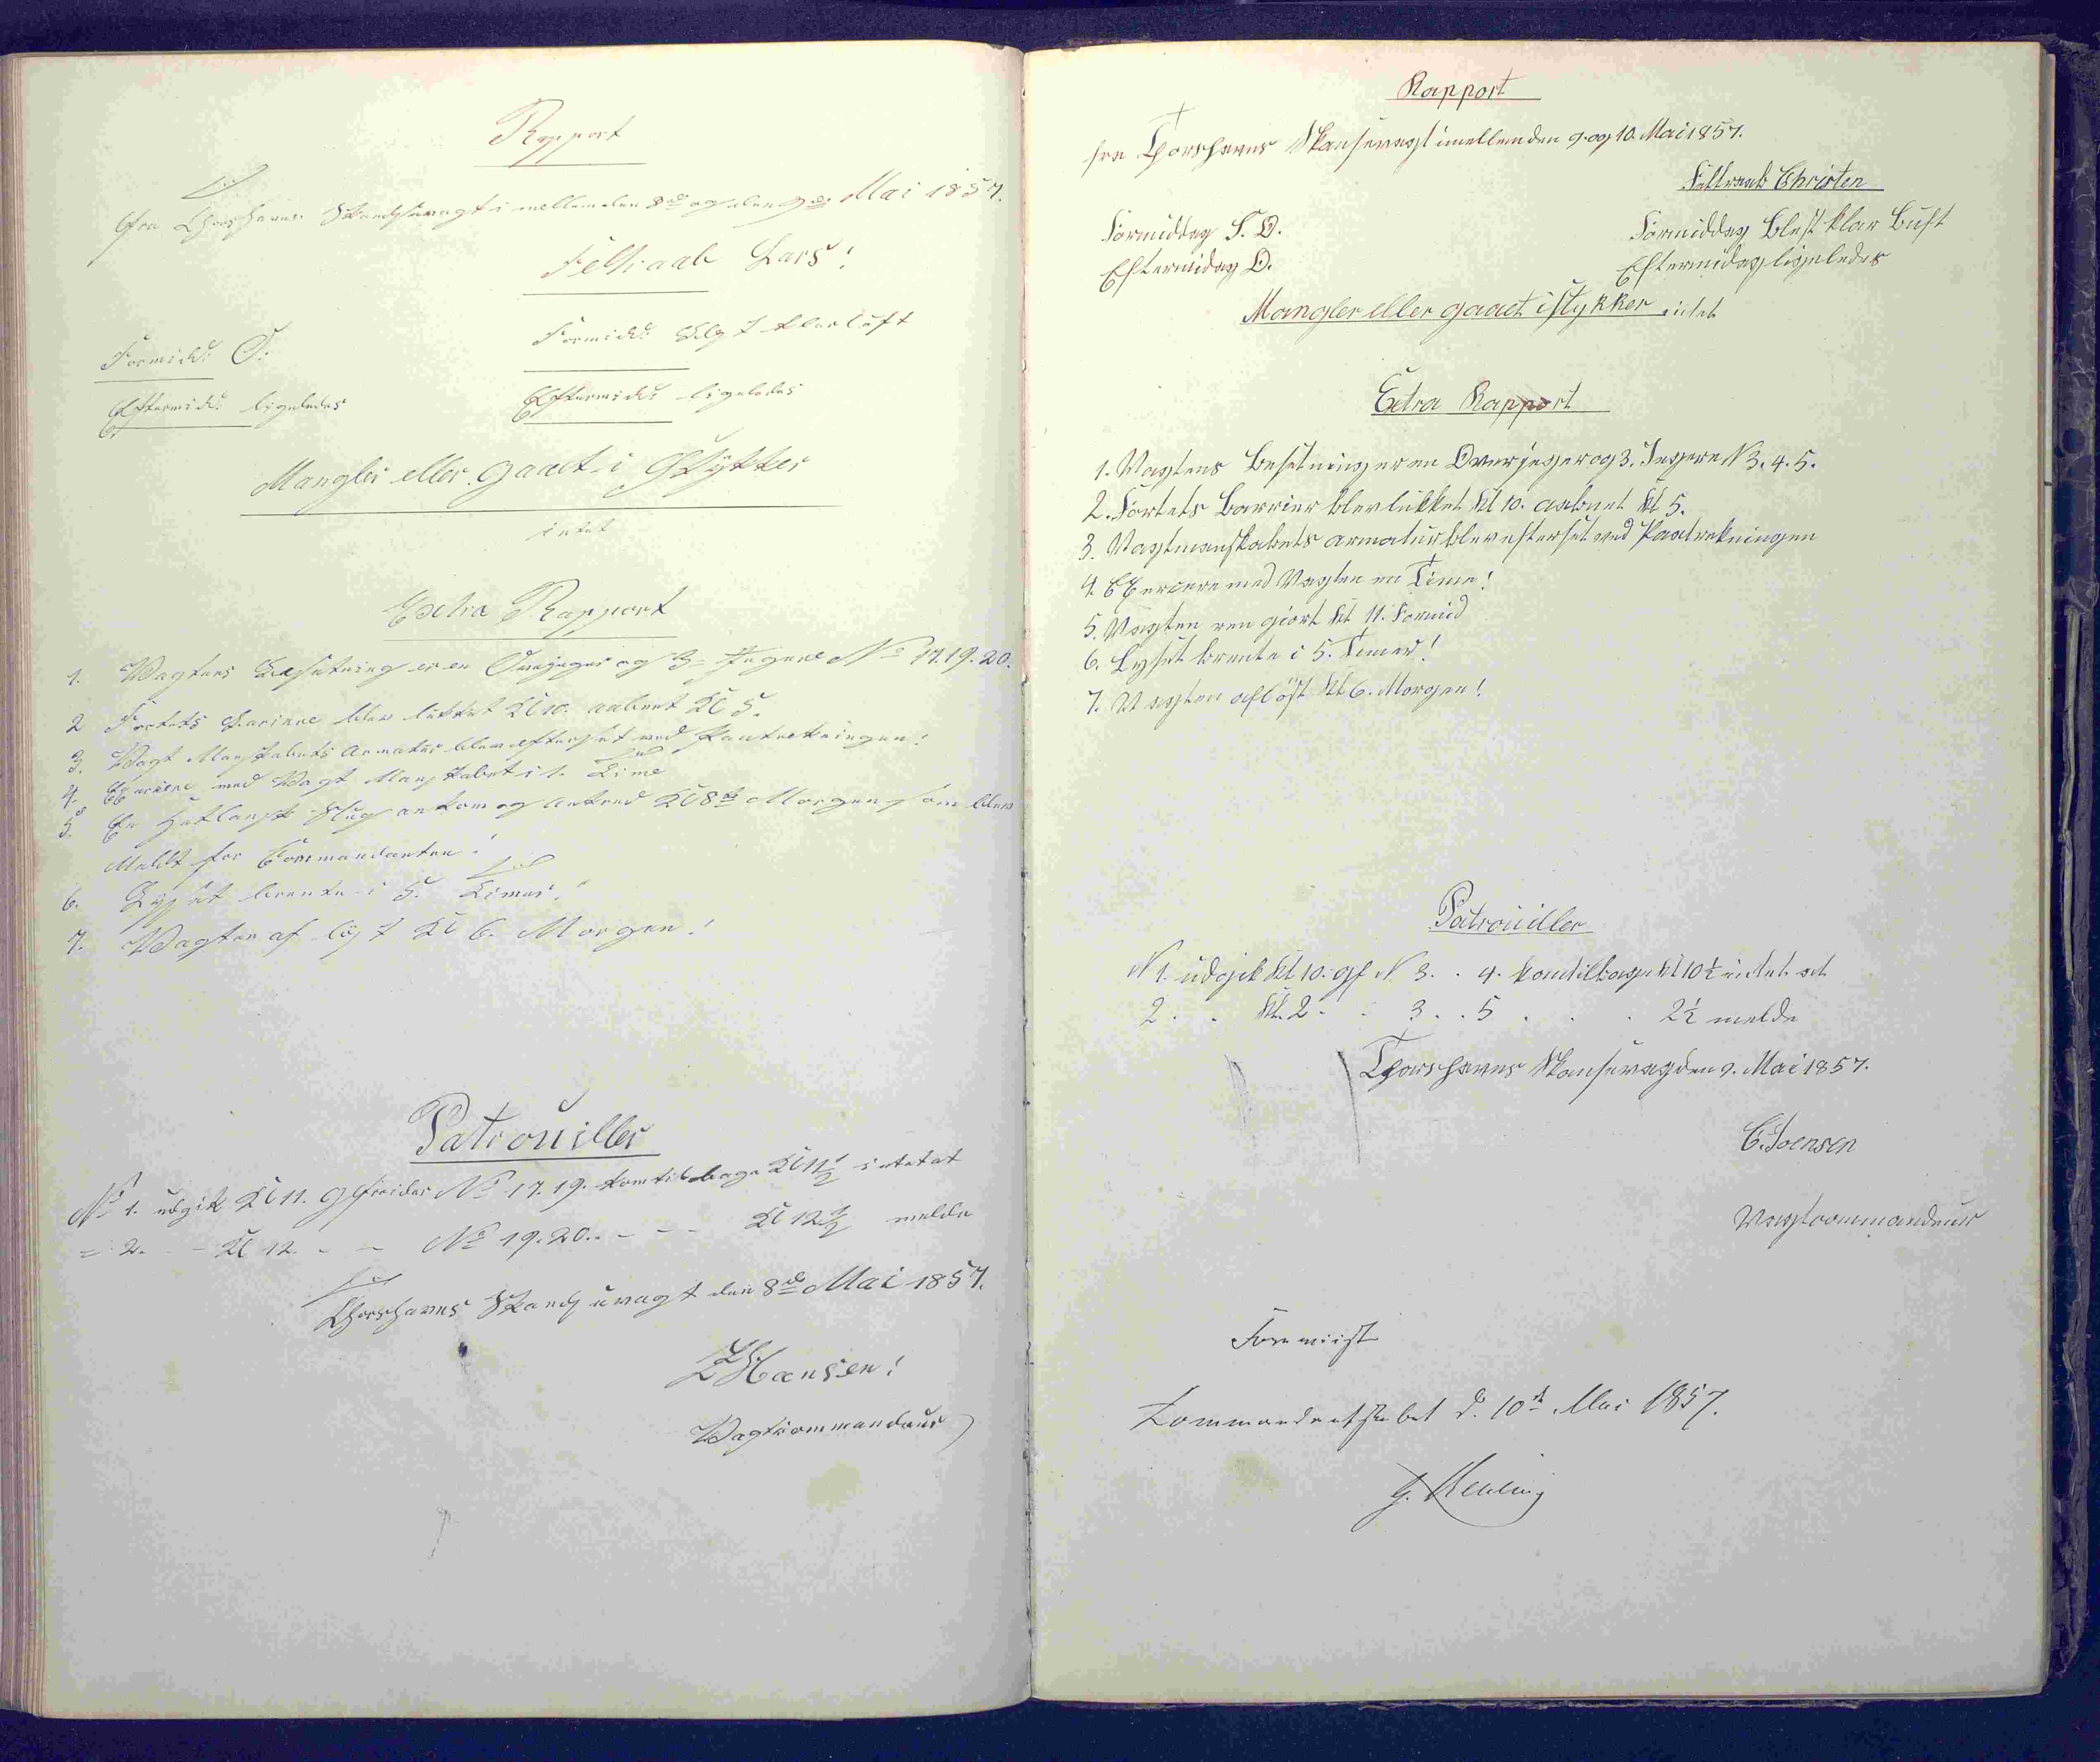 Rapport
fra Thorshavns Skandsevagt i mellem den 8de og den 9de Mai 1857.
Feltraab Lars!
Formidd: O.
Formidd: Blest klar luft
Eftermidd: ligeledes
Eftermidd: ligeledes
Mangler eller gaaet i Stykker
intet
Extra Rapport
1. Vagtens Besetning er en Overjeger og 3 Jegere No 17. 19. 20.
2 Fortets Bariere blev lukket Kl 10. aabnet Kl 5.
3. Vagt Manskabets Armatur blev efterset ved Paatrekningen!
4. Exersere med Vagt Manskabet i 1. Time
5. En Hetlansk Slup ankom og Kl 8 Morgen som blev
Meldt for Commandanten!
6. Lyset brente i 5. Timer!
7. Vagten af löst Kl 6. Morgen!
Patrouiller
No 1. udgik Kl 11. Gefreider No 17. 19. kom tilbage Kl 11½ intet at
= 2. - - Kl 12. - - No 19. 20. - - - Kl 12½ melde
Thorshavns Skandsevagt den 8de Mai 1857.
Hansen!
Vagtcommandeur
Rapport
fra Thorshavns Skansevagt imellem den 9. og 10. Mai 1857.
Feltraab Christen
Formiddag S. O.
Formiddag blest klar Luft
Eftermidag O.
Eftermidag ligeledes
Mangler eller gaaet i stykker intet
Extra Rapport
1. Vagtens Besetning er en Overjeger og 3. Jegere N 3. 4. 5.
2. Fortets Barrier blev lukket Kl 10. aabnet Kl 5.
3. Vagtmanskabets armatur blev efterset ved Paatrekningen
4. Exercere med Vagten en Time!
5. Vagten ren giort Kl 11. Formid
6. Lyset brente i 5. Timer!
7. Vagten aflöst Kl 6. Morgen!
Patrouiller
N 1. udgik Kl 10. gf N 3. . 4. kom tilbage Kl 10½ intet at
2. . Kl. 2 - - 3. . 5 . . . 2½ melde
Thorshavns Skansevag den 9. Mai 1857.
C. Joensen
Vagtcommandeur
Foreviist
Kommandantskabet d. 10de Mai 1857.